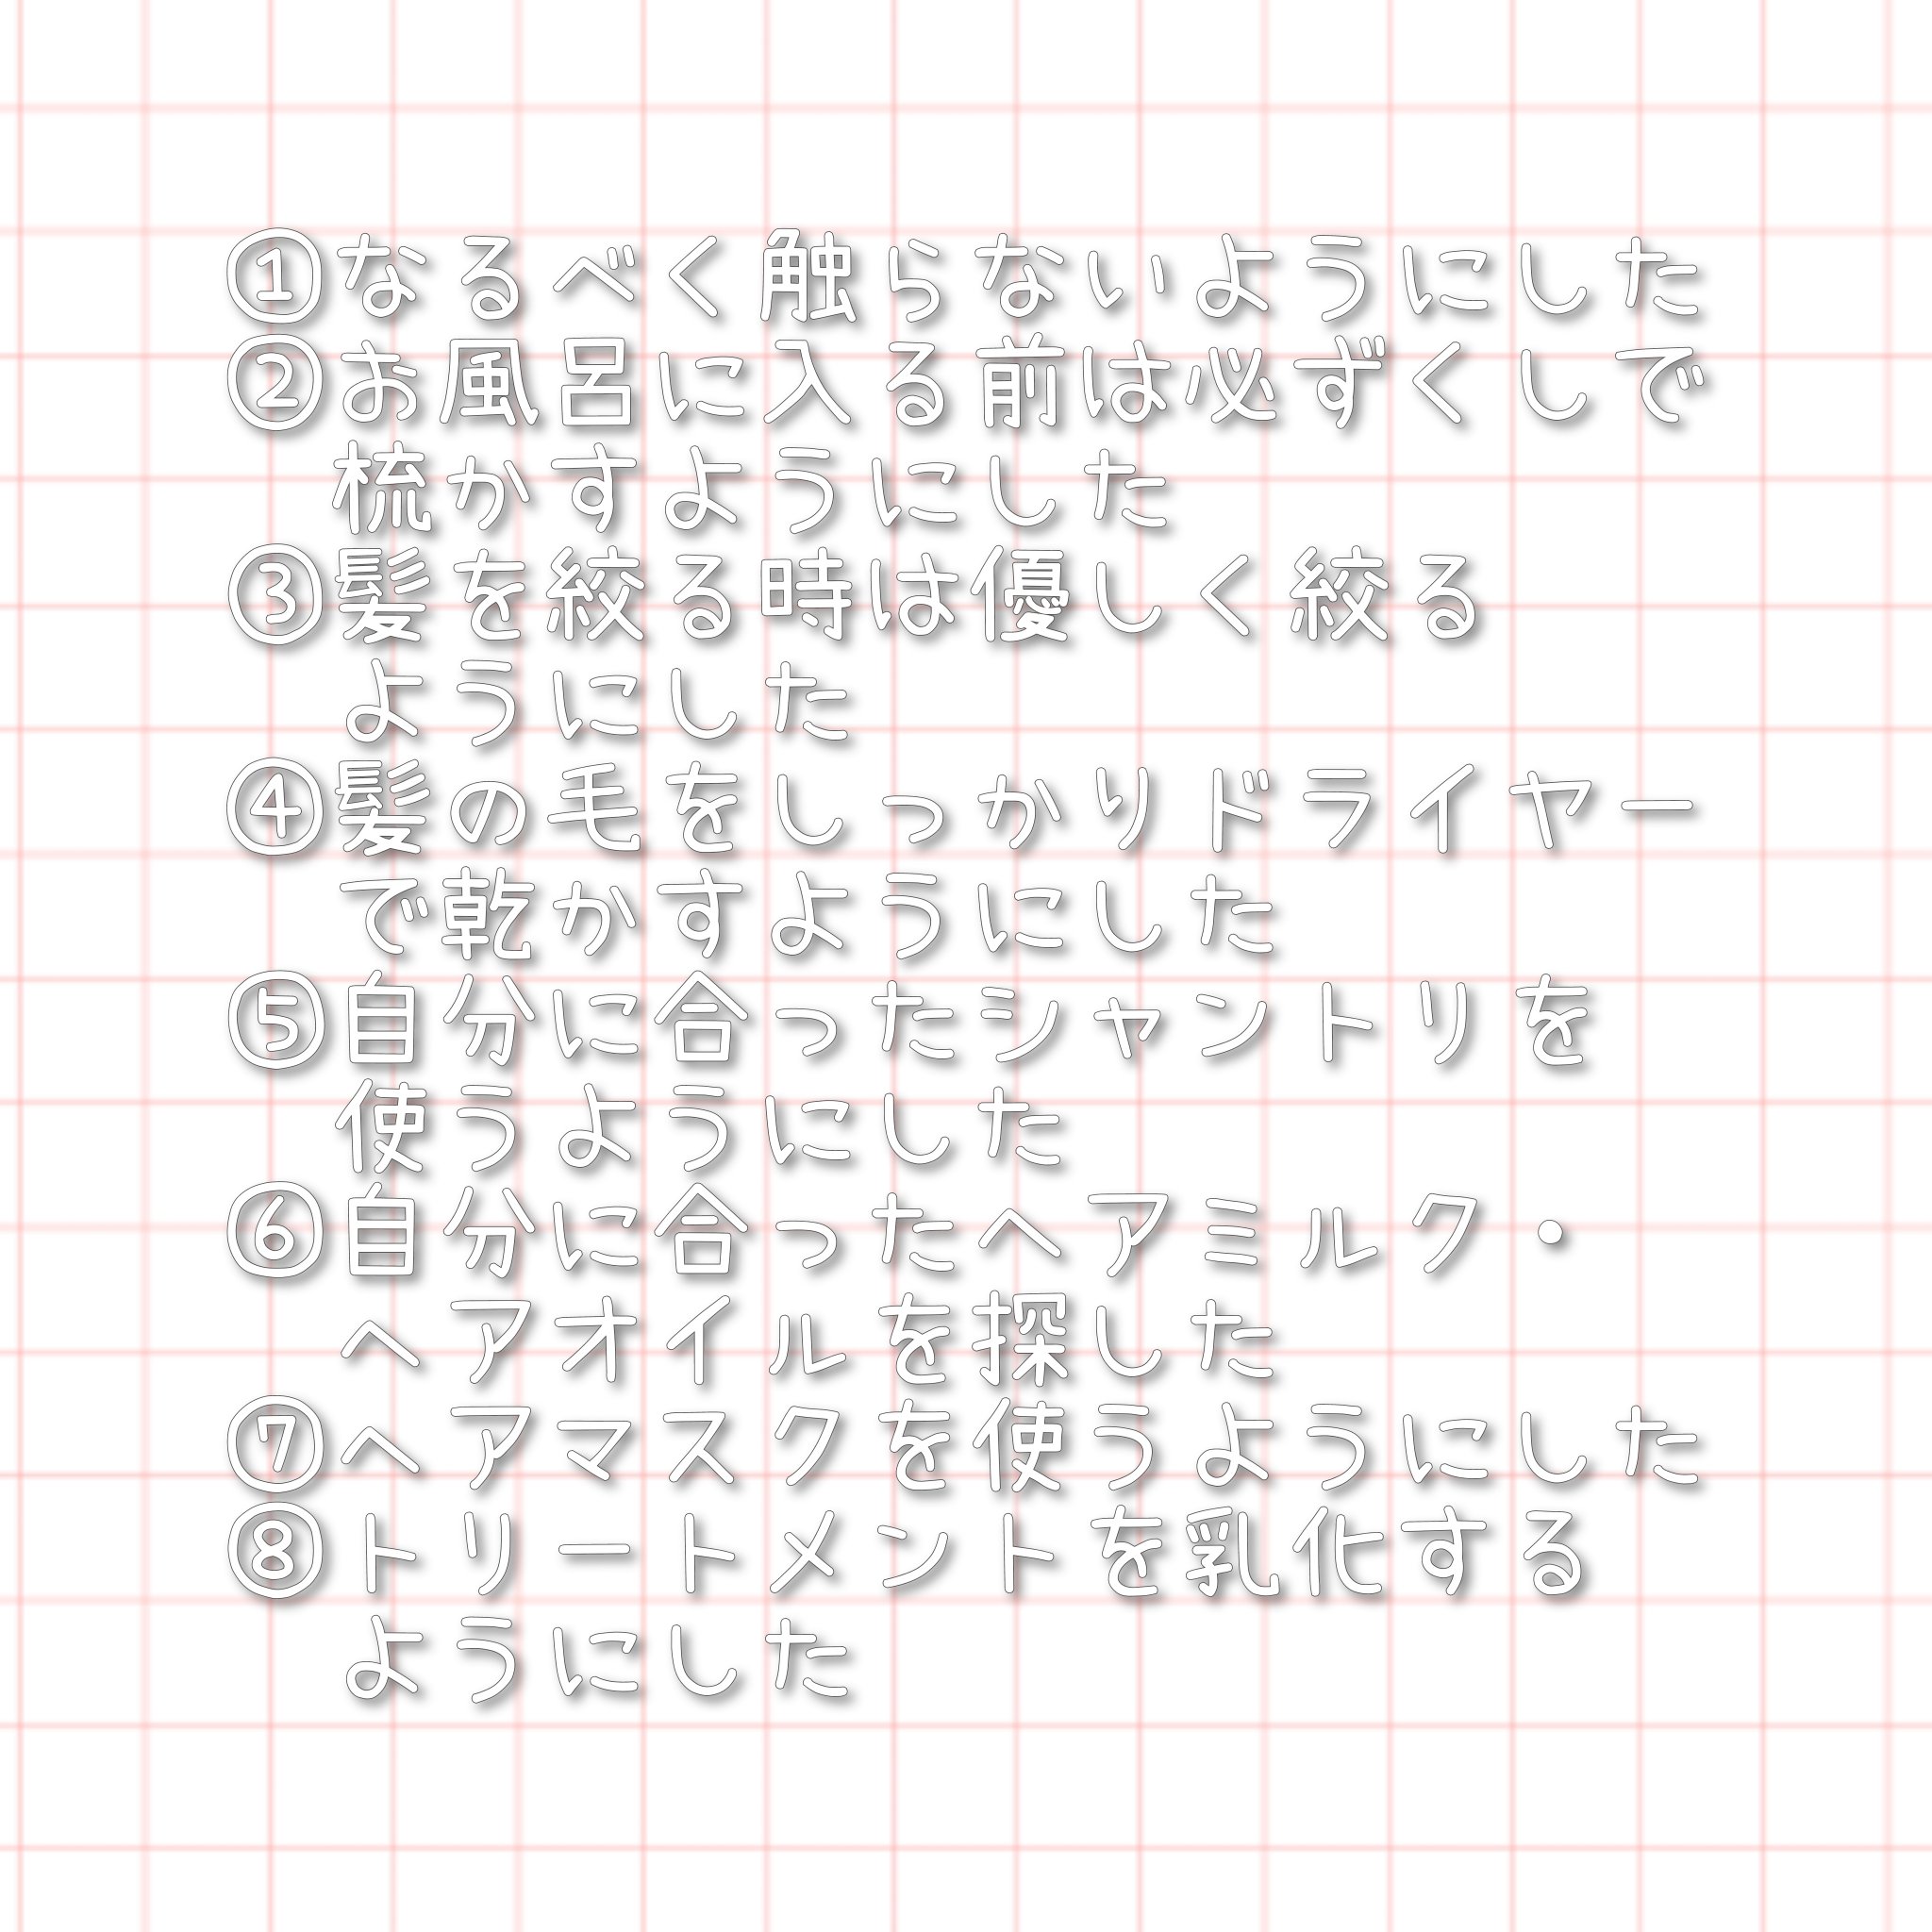 ①なるべく触らないようにした
②お風呂に入る前は必ずくしで
梳かすようにした
③髪を絞る時は優しく絞る
ようにした
④髪の毛をしっかりドライヤー
で乾かすようにした
⑤自分に合ったシャントリを
使うようにした
⑥自分に合ったヘアミルク・
ヘアオイルを探した
⑦ヘアマスクを使うようにした
⑧トリートメントを乳化する
ようにした